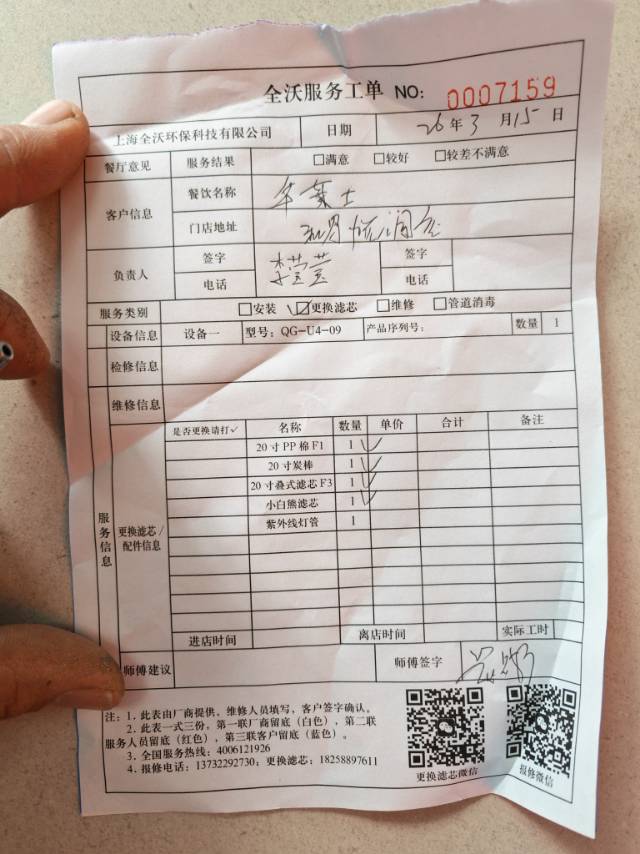 全沃服务工单 NO: 0007159
上海全沃环保科技有限公司 日期 26年3月15日
餐厅意见 服务结果 □满意 □较好 □较差不满意
客户信息 餐饮名称 华莱士
门店地址
负责人 签字 李莹莹 签字
电话 电话
服务类别 □安装 ☑更换滤芯 □维修 □管道消毒
设备信息 设备一 型号: QG-U4-09 产品序列号: 数量 1
检修信息
维修信息
服务信息
更换滤芯/配件信息
是否更换请打✓ 名称 数量 单价 合计 备注
20寸PP棉F1 1 ✓
20寸炭棒 1 ✓
20寸叠式滤芯F3 1 ✓
小白熊滤芯 1 ✓
紫外线灯管 1
进店时间 离店时间 实际工时
师傅建议 师傅签字
注: 1. 此表由厂商提供, 维修人员填写, 客户签字确认。
2. 此表一式三份, 第一联厂商留底(白色), 第二联
服务人员留底(红色), 第三联客户留底(蓝色)。
3. 全国服务热线: 4006121926
4. 报修电话: 13732292730; 更换滤芯: 18258897611
更换滤芯微信 报修微信